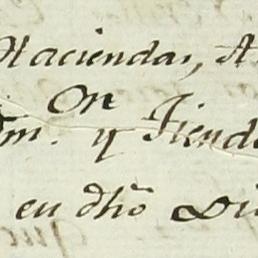 Haciendas, A
on
m. y Tiend
en dho Di